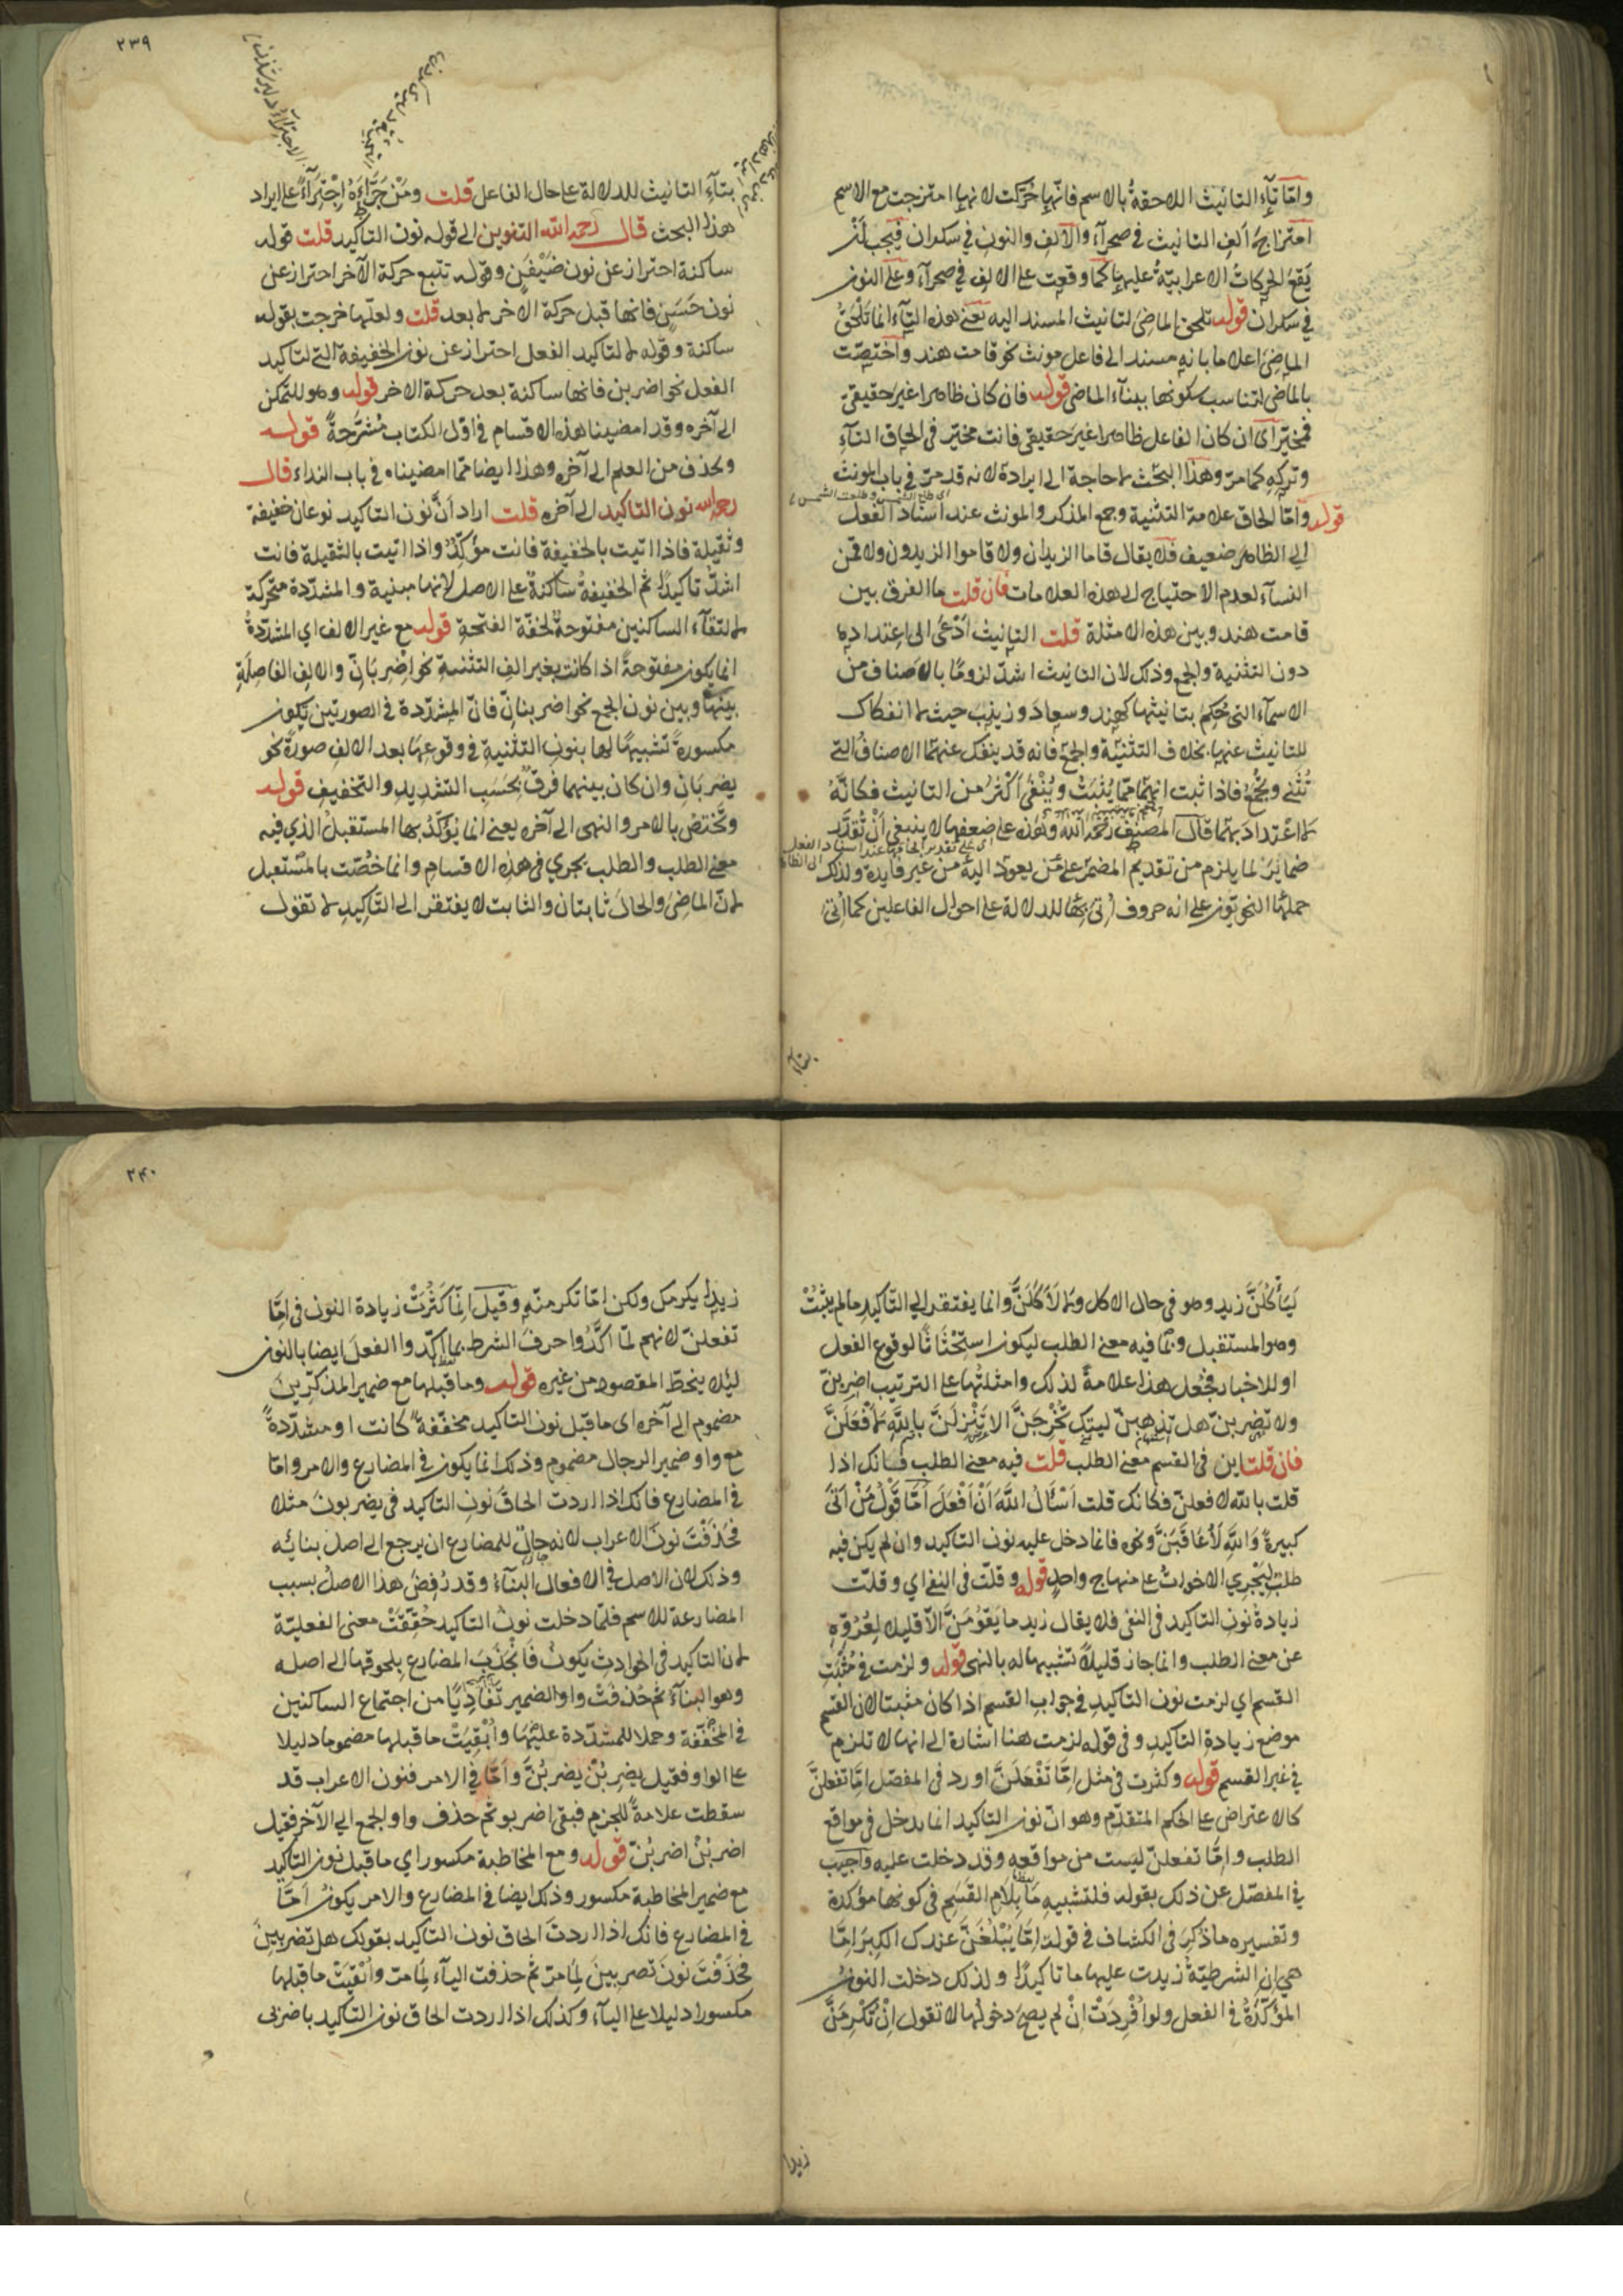 وامّا تآء التانيث اللاحقةُ بالاسم فانّها حُرّكت لانها امتزجت مع الاسم
امتزاجَ الف التانيث في صحرآء والالف والنون في سكران فيجب اَنْ
يَقعَ الحركاتُ الاعرابيّةُ عليها كما وقعت على الالف في صحرآء وعلى النون
في سكران قوله تلحق الماضي لتانيث المسند اليه يعني هذه التآء انما تَلحَقُ
الماضي اعلاما بانه مسند الى فاعل مونث نحو قامت هند واختصّت
بالماضي لتناسب سكونها ببنآء الماضي قوله فان كان ظاهرا غير حقيقي
فمخيّر اى ان كان الفاعل ظاهرا غير حقيقي فانت مخيّر في الحاق التآء
وتركه كما مرّ وهذا البحث لا حاجة الى ايراده لانه قد مرّ في باب المونث
اى طلع الشمس وطلعت الشمس
قوله وامّا الحاق علامة التثنية وجمع المذكر والمونث عند اسناد الفعل
الى الظاهر ضعيف فلا يقال قاما الزيدان ولا قاموا الزيدون ولا قمن
النسآء لعدم الاحتياج الى هذه العلامات فان قلت ما الفرق بين
قامت هند وبين هذه الامثلة قلت التانيث ادْعَى الى اعتداده
دون التثنية والجمع وذلك لان التانيث اشدّ لزومًا بالاصناف من
الاسمآء التى حُكِمَ بتانيثها كهند وسعاد وزينب حيث لا انفكاك
للتانيث عنها بخلاف التثنية والجمع فانه قد ينفك عنهما الاصناف التى
تُثنى وتُجمع فاذا ثبت انهما مما يُثبت ويُنْفَى اكثرُ من التانيث فكانّه
لا اعتدادَ بهما قال المصنف رحمه الله وهذه على ضعفها لا ينبغي اَنْ تُقدّر
اى على تقدير الحاقها عند اسناد الفعل الى الظاهر
ضمايرَ لما يلزم من تقديم المضمر على مَن يعود اليه من غير فايدة ولذلك
حملها النحويّون على انه حروف اُتى بها للدلالة على احوال الفاعلين كما اُتى
بتاء
٢٣٩
بتآء التانيث للدلالة على حال الفاعل قلت ومَنْ جَرَّاءَهُ اجْتِرَآءً على ايراد
هذا البحث قال رحمه الله التنوين الى قوله نون التاكيد قلت قوله
ساكنة احتراز عن نون ضَيْفَنٍ وقوله تتبع حركة الآخر احتراز عن
نون حَسَنٍ فانها قبل حركة الاخر لا بعد قلت ولعلّها خرجت بقوله
ساكنة وقوله لا لتاكيد الفعل احتراز عن نون الخفيفة التى لتاكيد
الفعل نحو اضربن فانها ساكنة بعد حركة الاخر قوله وهو للتمكن
الى آخره وقد امضينا هذه الاقسام في اوّل الكتاب مُشرَّحةً قوله
وتحذف من العلم الى آخره وهذا ايضا ممّا امضيناه في باب النداء قال
رحمه الله نون التاكيد الى آخره قلت اراد اَنَّ نون التاكيد نوعان خفيفة
وثقيلة فاذا اتيت بالخفيفة فانت مؤكِّدٌ واذا اتيت بالثقيلة فانت
اشدّ تاكيدًا ثم الخفيفةُ ساكنةٌ على الاصل لانها مبنية والمشدّدة متحركة
لالتقآء الساكنين مفتوحةً لخفّة الفتحةِ قوله مع غير الالف اي المشدّدةُ
انما يكون مفتوحةً اذا كانت بغير الف التثنية نحو اضربانّ والالف الفاصلةِ
بينها وبين نون الجمع نحو اضربنانّ فانّ المشدّدة في الصورتين يكون
مكسورةً تشبيهًا لها بنون التثنية في وقوعها بعد الالف صورةً نحو
يضربانِ وان كان بينهما فرقٌ بحَسَبِ التشديد والتخفيف قوله
وتختصّ بالامر والنهى الى آخره يعني انما يُؤكَّدُ بها المستقبل الذي فيه
معنى الطلب والطلب يجري في هذه الاقسام وانما خُصّت بالمستقبل
لانّ الماضي والحالَ ثابتان والثابت لا يفتقر الى التّاكيد لا تقول
لَيَأكُلَنَّ زيد وهو في حال الاكل ولا لَاَكَلَنَّ وانما يفتقر الى التّاكيد ما لم يثبُتْ
وهو المستقبل وبما فيه معنى الطلب ليكون استحْثاثًا لوقوع الفعل
او للاخبار فجُعل هذا علامةً لذلك وامثلتُها على الترتيب اضربنّ
ولا تضربنّ هل تذهبنّ ليتك تَخْرجَنَّ الا تَنْزِلَنَّ بالله لاَفْعَلَنَّ
فان قلت اين في القسم معنى الطلب قلت فيه معنى الطلب فانك اذا
قلت بالله لافعلنّ فكانك قلت اَسْأَلُ اللهَ اَنْ اَفْعَلَ اَمّا قَوْلُ مَنْ اَتَى
كبيرةً وَاللهِ لَاُعَاقَبَنَّ ونحوه فانما دخل عليه نون التاكيد وان لم يكن فيه
طلب ليَجْري الاخوات على منهاج واحد قوله وقلّت في النفى اي وقلّت
زيادةُ نون التاكيد في النفى فلا يقال زيد ما يَقُوْمَنَّ الّا قليلا لعُرُوِّهِ
عن معنى الطلب وانما جاز قليلًا تشبيها له بالنهى قوله ولزمت في مُثبَتِ
القسم اي لزمت نون التاكيد في جواب القسم اذا كان مثبتا لان القسم
موضع زيادة التاكيد وفي قوله لزمت هنا اشارة الى انها لا تلزم
في غير القسم قوله وكثرت في مثل اِمّا تَفْعَلَنَّ اورد في المفصّل اِمّا تفعلنّ
كالاعتراض على الحكم المتقدّم وهو انّ نون التاكيد انما يدخل في مواقع
الطلب واِمّا تفعلنّ ليست من مواقعه وقد دخلت عليه واُجيب
في المفصّل عن ذلك بقوله فلتشبيه مَا بلام القَسَم في كونها مؤكدة
وتفسيره ما ذُكِرَ في الكشاف في قوله اِمّا يَبْلُغَنَّ عندك الكِبَرَ اِمّا
هي اِن الشرطيّةُ زيدت عليها ما تاكيدًا ولذلك دخلت النون
المؤكّدةُ في الفعل ولو اُفْرِدَتْ اِنْ لم يصحّ دخولُها لا تقول اِنْ تُكْرِمَنَّ
زيدا
٢٤٠
زيدا يكرمك ولكن اِمّا تكرمنّه وقيل انّما كَثُرَتْ زيادة النون في اِمّا
تفعلنّ لانهم لمّا اكَّدُوا حرفَ الشرط بما اكّدوا الفعلَ ايضا بالنون
ليلا ينحطّ المقصود من غيره قوله وما قبلها مع ضمير المذكرين
مضموم الى آخره اى ما قبل نون التاكيد مخففةً كانت او مشدّدةً
مع واو ضمير الرجال مضموم وذلك انما يكون في المضارع والامر وامّا
في المضارع فانك اذا اردت الحاق نون التاكيد في يضربون مثلا
فحَذَفْتَ نون الاعراب لانه حان للمضارع ان يرجع الى اصل بنائه
وذلك لان الاصل في الافعال البنآء وقد رُفِضَ هذا الاصلُ بسبب
المضارعة للاسم فلمّا دخلت نون التاكيد حُقِّقَتْ معنى الفعليّة
لان التاكيد في الحوادث يكون فانْجَذَبَ المضارع بلحوقها الى اصله
وهو البنآء ثم حُذفَتْ واو الضمير تَفاديًا من اجتماع الساكنين
في المخفّفة وحملا للمشدّدة عليها واُبْقِيَتْ ما قبلها مضموما دليلا
على الواو فقيل يضربُنْ يضربُنَّ وَاَمّا في الامر فنون الاعراب قد
سقطت علامةً للجزم فبقى اضربو ثم حذف واو الجمع الى الآخر فقيل
اضربُنْ اضربُنّ قوله ومع المخاطبة مكسور اي ما قبل نون التاكيد
مع ضمير المخاطبة مكسور وذلك ايضا في المضارع والامر يكون اَمّا
في المضارع فانك اذا اردتَ الحاق نون التاكيد بقولك هل تضربينَ
فحَذَفْتَ نونَ تضربينَ لِمَا مرّ ثم حذفت اليآء لِمَا مرّ واُبْقِيَتْ ما قبلها
مكسورا دليلا على اليآء وكذلك اذا اردت الحاق نون التاكيد باضربى